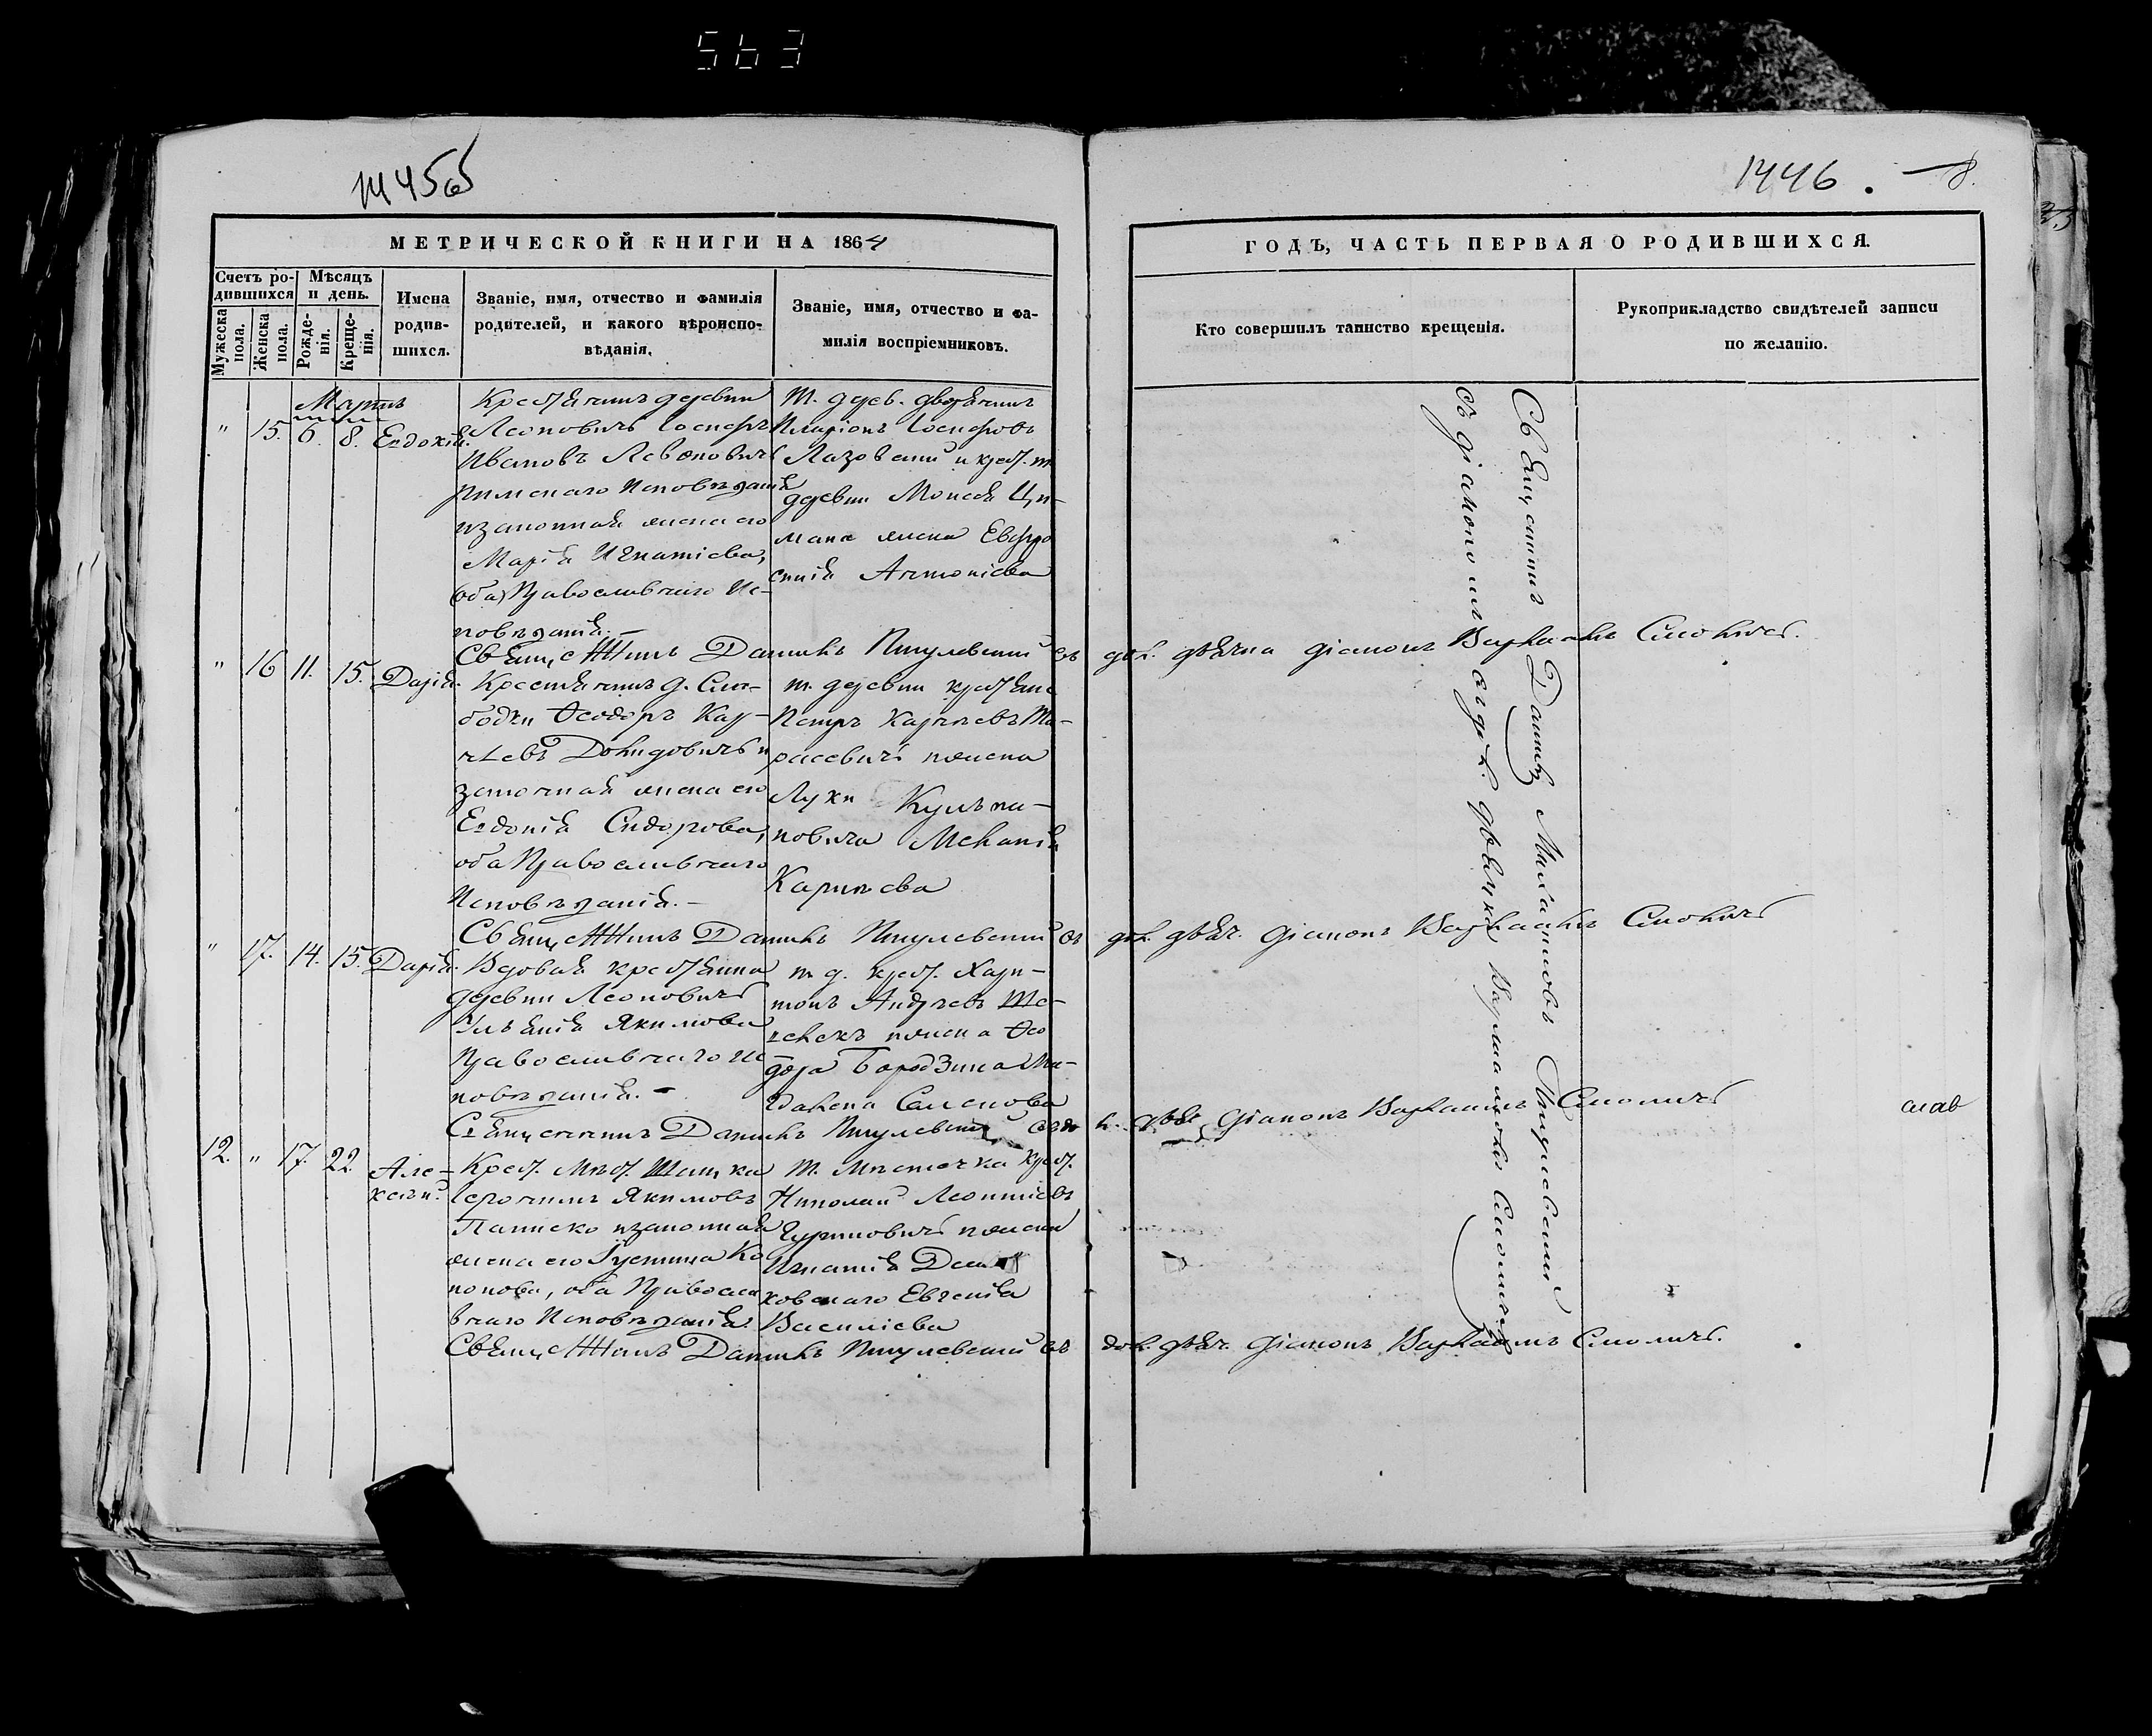 563
1446. 8.
МЕТРИЧЕСКОЙ КНИГИ НА 1864
ГОДЪ, ЧАСТЬ ПЕРВАЯ О РОДИВШИХСЯ.
Счетъ ро-
дившихся
Мужеска пола.
Женска пола.
Мѣсяцъ
и день.
Рожде-
нія.
Креще-
нія.
Имена
родив-
шихся.
Званіе, имя, отчество и фамилія
родителей, и какого вѣроиспо-
вѣданія.
Званіе, имя, отчество и фа-
милія воспріемниковъ.
Кто совершилъ таинство крещенія.
Рукоприкладство свидѣтелей записи
по желанію.
Мартъ
" 15. 6. 8. Евдокія.
Крестьянинъ деревни
Леоновичъ Іосифъ
Ивановъ
Римскаго Исповѣданія
и законная жена его
Марія Игнатіева,
Православнаго Ис-
повѣданія.—
т. дерев. дворянинъ
Иларіонъ Іосифовъ
Лазовскій и крест. т.
деревни Моисея Ци-
мана жена Евфро
синія Антоніева
Священникъ Даніилъ Пигулевскій съ дол. дьячка діаконъ Варлаамъ Смоличъ.
" 16 11. 15. Дарія.
Крестьянинъ д. Сло-
бодки Ѳеодоръ Кар-
нѣевъ и
законная жена его
Евдокія Сидорова,
оба Православнаго
Исповѣданія.—
т. деревни крестьяне
Петръ Карнѣевъ Та-
расевичъ и жена
Луки Кульма-
новича Меланія
Карнѣева
Священникъ Даніилъ Пигулевскій съ дол. дьяч. діаконъ Варлаамъ Смоличъ
" 17. 14. 15. Дарія.
Вдовая крестьянка
деревни Леоновичъ
Ульянія Якимова
Православнаго Ис-
повѣданія.—
т. д. крест. Хари-
тонъ Андреевъ
и жена Ѳео
дора Бородзина Ма-
гдалена Семенова
Священникъ Даніилъ Пигулевскій діаконъ Варлаамъ Смоличъ
12. " 17. 22. Але-
ксѣй.
Крест. Мѣст. Шацка
Іеронимъ Якимовъ
и законная
жена его Іустина Ко
нонова, оба Правосла
внаго Исповѣданія.
т. Мѣстечка крест.
Николай Леонтіевъ
Чуриловичъ и жена
Игнатія
Евгенія
Василіева
Священникъ Даніилъ Пигулевскій съ дол. дьяч. діаконъ Варлаамъ Смоличъ.
Священникъ Даніилъ Михайловъ Пигулевскій
съ діакономъ Варлаамомъ Смоличемъ